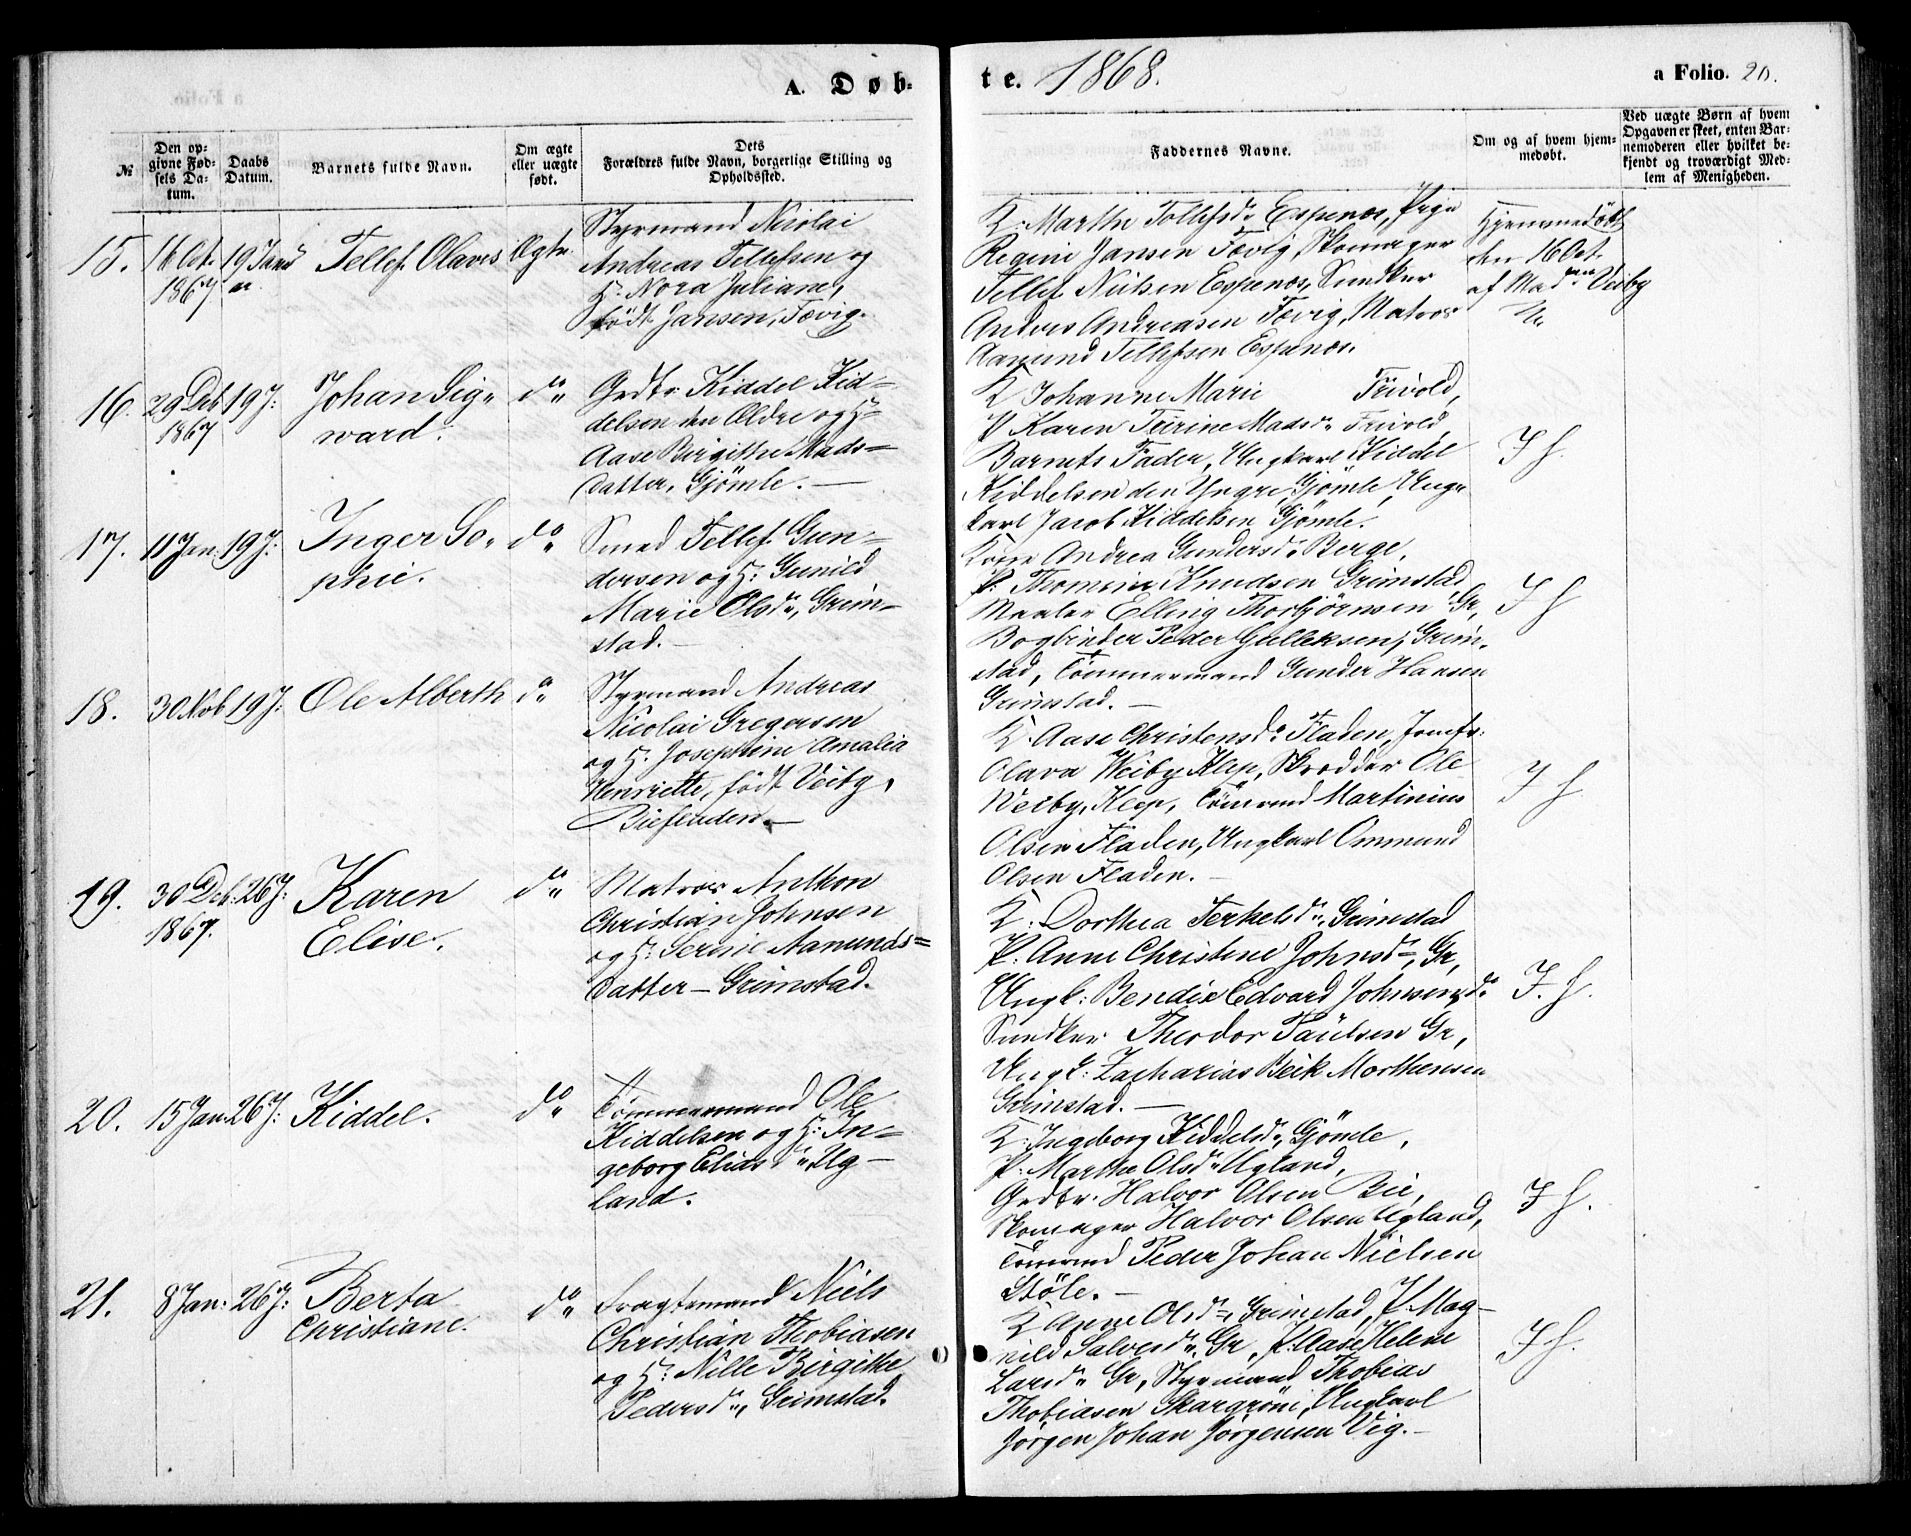 A. Døb-
te. 1868.
a Folio. 20.
№
Den op-
givne Fød-
sels Da-
tum.
Daabs
Datum.
Barnets fulde Navn.
Om ægte
eller uægte
født.
Dets
Forældres fulde Navn, borgerlige Stilling og
Opholdssted.
Faddernes Navne.
Om og af hvem hjem-
medøbt.
Ved uægte Børn af hvem
Opgaven er skeet, enten Bar-
nemoderen eller hvilket be-
kjendt og troværdigt Med-
lem af Menigheden.
15.
16 Oct.
1867
19 Janu
ar
Tellef Olaves
Ægte
Styrmand Nicolai
Andreas Tellefsen og
H. Nora Juliane,
født Jansen, Fævig.
K. Marthe Tollefsdr Espenes, Pige
Regine Jansen Fævig, Skomager
Tellef Nielsen Espenes, Snedker
Anders Andreasen Fævig, Matros
Aanund Tellefsen Espenes.
Hjemmedøbt
den 16 Oct.
af Mad. Veiby
16.
29 Deb
1867
19 J:
Johan Sig-
ward.
do
Grdbr Kiddel Kid-
delsen den Ældre og H:
Aase Birgithe Mads-
datter, Gjömle. —
K Johanne Marie Frivold,
P Karen Terine Madsdr Frivold
Barnets Fader, Ungkarl Kiddel
Kiddelsen den Yngre Gjömle, Ung-
karl Jacob Kiddelsen Gjömle.
I h.
17.
11 Jan:
19 J:
Inger So-
phie.
do
Smed Tellef Gun-
dersen og H: Gunild
Marie Olsdr, Grim-
stad. —
Kone Andrea Gundersdr Berge,
P. Thomine Knudsen Grimstad
Maaler Elling Thorbjörnsen Gr,
Bogbinder Peder Gulleksen, Grim-
stad, Tömmermand Gunder Hansen
Grimstad. —
I h
18.
30 Nob
19 J:
Ole Alberth
do
Styrmand Andreas
Nicolai Gregersen
og H. Josephine Amalia
Henriette, født Veiby,
K. Aase Christensdr Fladen, Jomfr:
Olava Weiby Klep, Skrædder Ole
Weiby, Klep, Tömmand Martinius
Olsen Fladen, Ungkarl Ommund
Olsen Fladen. —
I h
19.
30 Deb:
1867.
26 J:
Karen
Elise.
do
Matros Anthon
Christian Johnsen
og H: Serine Aanunds-
datter – Grimstad.
K: Dorthea Terkelsdr, Grimstad
P. Anne Christine Johnsdr, Gr,
Ungk: Bendix Edvard Johnsen, do
Snedker Theodor Paulsen Gr,
Ungk: Zacharias Beik Morthensen
Grimstad. —
I. h.
20.
15 Jan:
26 J:
Kiddel.
do
Tömmermand Ole
Kiddelsen og H: In-
geborg Eliasdr, Ug-
land.
K: Ingeborg Kiddelsdr, Gjömle,
P. Marthe Olsdr Ugland,
Grdbr. Halvor Olsen Bie,
Skomager Halvor Olsen Ugland,
Tömmand Peder Johan Nielsen
Støle. —
I h.
21.
8 Jan:
26 J:
Berta
Christiane.
do
Fragtemand Niels
Christian Thobiasen
og H: Nille Birgithe
Pedersdr, Grimstad.
K Anne Olsdr, Grimstad, P. Mag-
nild Salvesdr, Gr, P. Aase Helene
Larsdr Gr, Styrmand Thobias
Thobiasen Skargröni, Ungkarl
Jörgen Johan Jörgensen Vig. —
I h.